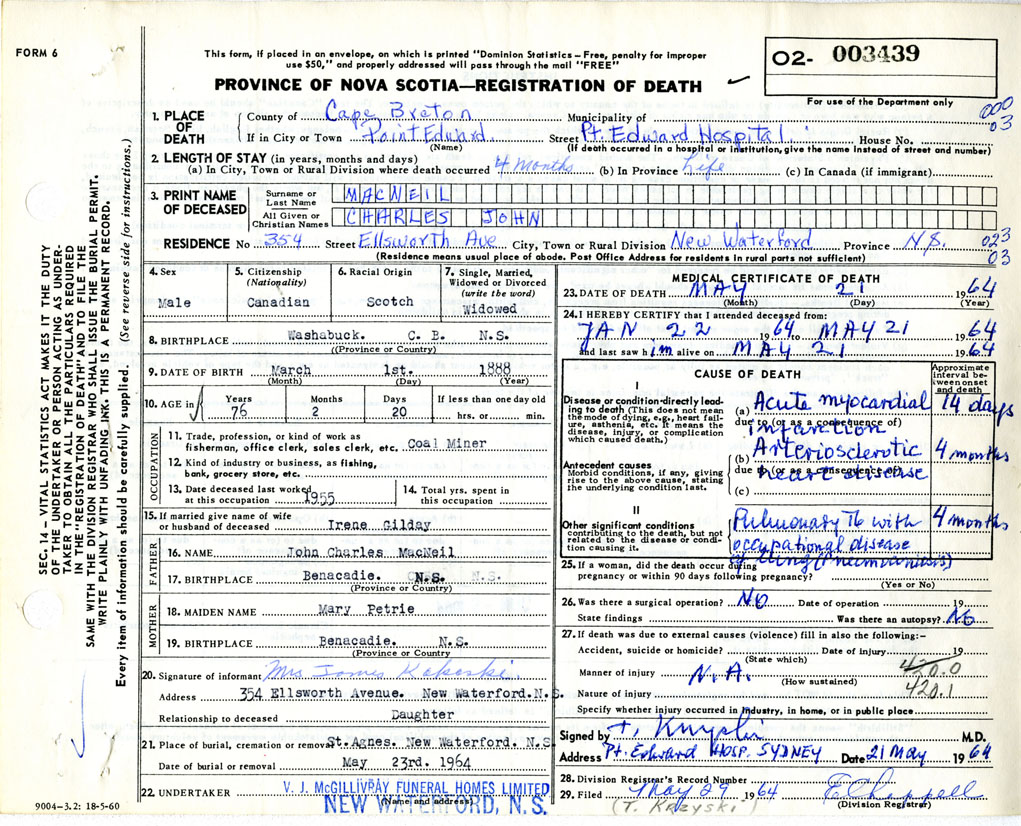 FORM 6
This form, if placed in an envelope, on which is printed "Dominion Statistics – Free, penalty for improper
use $50," and properly addressed will pass through the mail "FREE"
PROVINCE OF NOVA SCOTIA—REGISTRATION OF DEATH
02- 003439
For use of the Department only
000
03
SEC. 14 – VITAL STATISTICS ACT MAKES IT THE DUTY
OF THE UNDERTAKER OR PERSON ACTING AS UNDER-
TAKER TO OBTAIN ALL THE PARTICULARS REQUIRED
IN THE "REGISTRATION OF DEATH" AND TO FILE THE
SAME WITH THE DIVISION REGISTRAR WHO SHALL ISSUE THE BURIAL PERMIT.
WRITE PLAINLY WITH UNFADING INK. THIS IS A PERMANENT RECORD.
Every item of information should be carefully supplied. (See reverse side for instructions.)
1. PLACE OF DEATH
County of Cape Breton Municipality of
If in City or Town Point Edward Street Pt. Edward Hospital. House No.
(Name) (If death occurred in a hospital or institution, give the name instead of street and number)
2. LENGTH OF STAY (in years, months and days)
(a) In City, Town or Rural Division where death occurred 4 Months (b) In Province Life (c) In Canada (if immigrant)
3. PRINT NAME OF DECEASED
Surname or Last Name MACNEIL
All Given or Christian Names CHARLES JOHN
RESIDENCE No 354 Street Ellsworth Ave City, Town or Rural Division New Waterford Province N.S. 023
03
(Residence means usual place of abode. Post Office Address for residents in rural parts not sufficient)
4. Sex
Male
5. Citizenship
(Nationality)
Canadian
6. Racial Origin
Scotch
7. Single, Married, Widowed or Divorced
(write the word)
Widowed
8. BIRTHPLACE Washabuck. C. B. N.S.
((Province or Country)
9. DATE OF BIRTH March 1st. 1888
(Month) (Day) (Year)
10. AGE in Years Months Days If less than one day old
76 2 20 hrs. or min.
OCCUPATION
11. Trade, profession, or kind of work as
fisherman, office clerk, sales clerk, etc. Coal Miner
12. Kind of industry or business, as fishing,
bank, grocery store, etc.
13. Date deceased last worked
at this occupation 1955
14. Total yrs. spent in
this occupation
15. If married give name of wife
or husband of deceased Irene Gilday
FATHER
16. NAME John Charles MacNeil
17. BIRTHPLACE Benacadie. N.S. N.S.
(Province or Country)
MOTHER
18. MAIDEN NAME Mary Petrie
19. BIRTHPLACE Benacadie. N.S.
(Province or Country
20. Signature of informant Mrs James
Address 354 Ellsworth Avenue. New Waterford.N.S.
Relationship to deceased Daughter
21. Place of burial, cremation or removal St.Agnes. New Waterford. N.S.
Date of burial or removal May 23rd. 1964
22. UNDERTAKER V. J. McGILLIVRAY FUNERAL HOMES LIMITED
NEW WATERFORD, N.S.
(Name and address)
9004–3.2: 18-5-60
MEDICAL CERTIFICATE OF DEATH
23. DATE OF DEATH MAY 21 1964
(Month) (Day) (Year)
24. I HEREBY CERTIFY that I attended deceased from:
JAN 22 1964 to MAY 21 1964
and last saw him alive on MAY 21 1964
CAUSE OF DEATH
Approximate interval between onset and death
I
Disease or condition directly lead-
ing to death (This does not mean
the mode of dying, e.g., heart fail-
ure, asthenia, etc. It means the
disease, injury, or complication
which caused death.)
(a) Acute myocardial 14 days
due to (or as a consequence of)
infarction
(b) Arteriosclerotic 4 months
due to (or as a consequence of)
heart disease
(c)
Antecedent causes
Morbid conditions, if any, giving
rise to the above cause, stating
the underlying condition last.
II
Other significant conditions
contributing to the death, but not
related to the disease or condi-
tion causing it.
Pulmonary Tb with 4 months
occupational disease
of lung (Pneumoconiosis)
25. If a woman, did the death occur during
pregnancy or within 90 days following pregnancy?
(Yes or No)
26. Was there a surgical operation? NO Date of operation 19
State findings Was there an autopsy? No
27. If death was due to external causes (violence) fill in also the following:–
Accident, suicide or homicide? Date of injury 19
(State which)
Manner of injury N.A. 420.0
(How sustained)
Nature of injury 420.1
Specify whether injury occurred in industry, in home, or in public place
Signed by T. M.D.
Address Pt. Edward HOSP. SYDNEY Date 21 May 1964
28. Division Registrar's Record Number
29. Filed May 29 1964 E Chappell
(T. KRZYSKI) (Division Registrar)